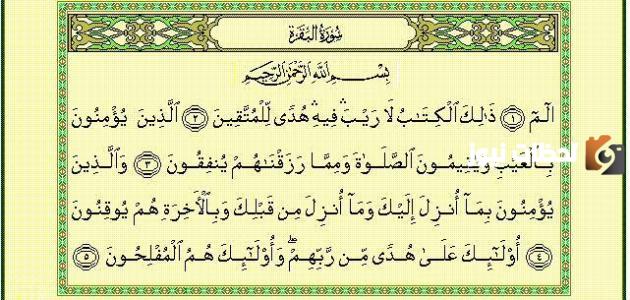 سُورَةُ البَقَرَة
بِسْمِ اللَّهِ الرَّحْمَٰنِ الرَّحِيمِ
الٓمٓ ۝١ ذَٰلِكَ الْكِتَابُ لَا رَيْبَ ۛ فِيهِ ۛ هُدًى لِّلْمُتَّقِينَ ۝٢ الَّذِينَ يُؤْمِنُونَ
بِالْغَيْبِ وَيُقِيمُونَ الصَّلَوٰةَ وَمِمَّا رَزَقْنَاهُمْ يُنفِقُونَ ۝٣ وَالَّذِينَ
يُؤْمِنُونَ بِمَآ أُنزِلَ إِلَيْكَ وَمَآ أُنزِلَ مِن قَبْلِكَ وَبِالْأَخِرَةِ هُمْ يُوقِنُونَ
۝٤ أُوْلَٰٓئِكَ عَلَىٰ هُدًى مِّن رَّبِّهِمْ ۖ وَأُوْلَٰٓئِكَ هُمُ الْمُفْلِحُونَ ۝٥
لحظات نيوز